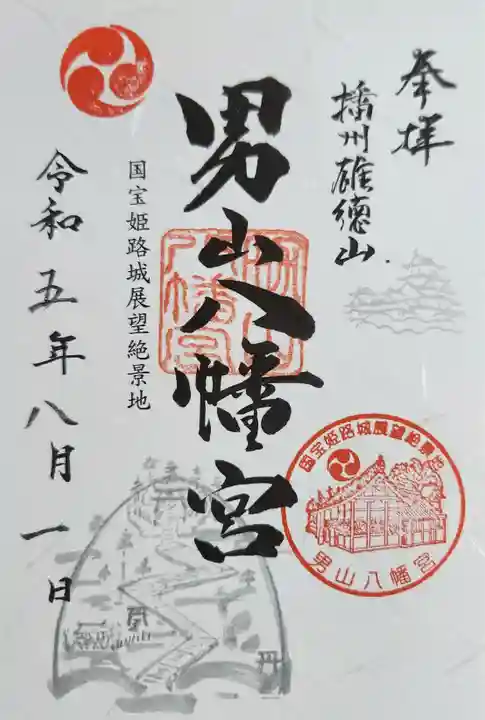 奉拝
播州雄徳山
男山八幡宮
男山八幡宮
国宝姫路城展望絶景地
男山八幡宮
国宝姫路城展望絶景地
令和五年八月一日